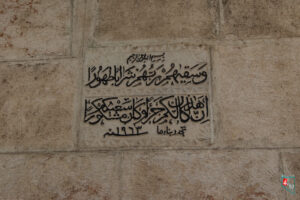 بسم الله الرحمن الرحيم
وسقيهم ربهم شرابا طهورا
ان هذا كان لكم جزاء وكان سعيكم مشكورا
١٩٦٣